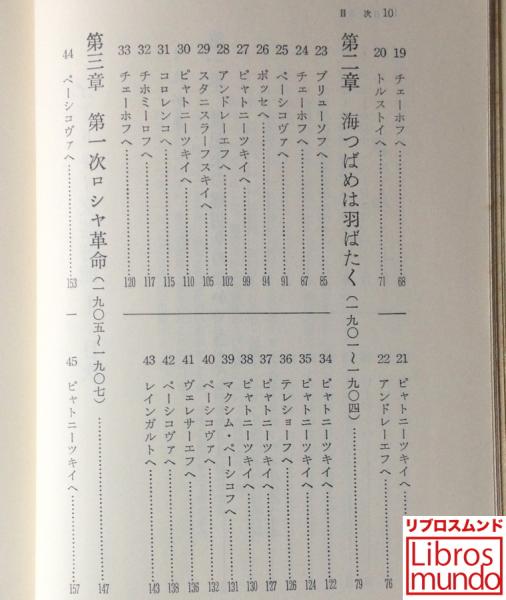 目次 10
19 チェーホフへ……68
20 トルストイへ……71
21 ピャトニーツキイへ……
22 アンドレーエフへ……76
第二章 海つばめは羽ばたく(一九〇一~一九〇四)……79
23 ブリューソフへ……85
24 チェーホフへ……87
25 ペーシコヴァへ……91
26 ポッセへ……94
27 ピャトニーツキイへ……99
28 アンドレーエフへ……102
29 スタニスラーフスキイへ……105
30 ピャトニーツキイへ……110
31 コロレンコへ……115
32 チホミーロフへ……117
33 チェーホフへ……120
34 ピャトニーツキイへ……122
35 ピャトニーツキイへ……124
36 テレショーフへ……126
37 ピャトニーツキイへ……127
38 ピャトニーツキイへ……130
39 マクシム・ペーシコフへ……131
40 ペーシコヴァへ……132
41 ヴェレサーエフへ……136
42 ペーシコヴァへ……138
43 レインガルトへ……143
第三章 第一次ロシヤ革命(一九〇五~一九〇七)……147
44 ペーシコヴァへ……153
45 ピャトニーツキイへ……157
リブロスムンド
Libros
mundo